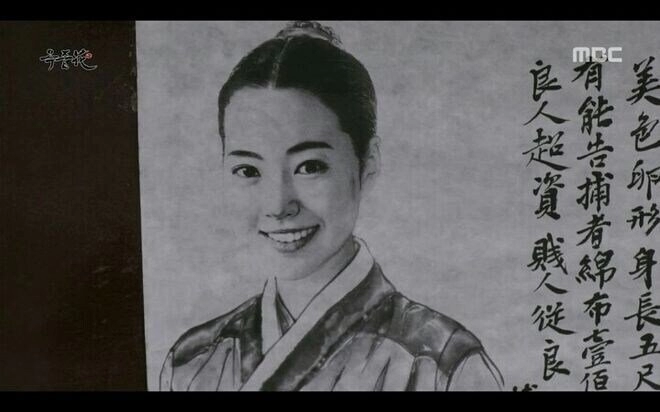 옥중花
MBC
美色卵形身長五尺
有能告捕者綿布壹佰
良人超資賤人從良